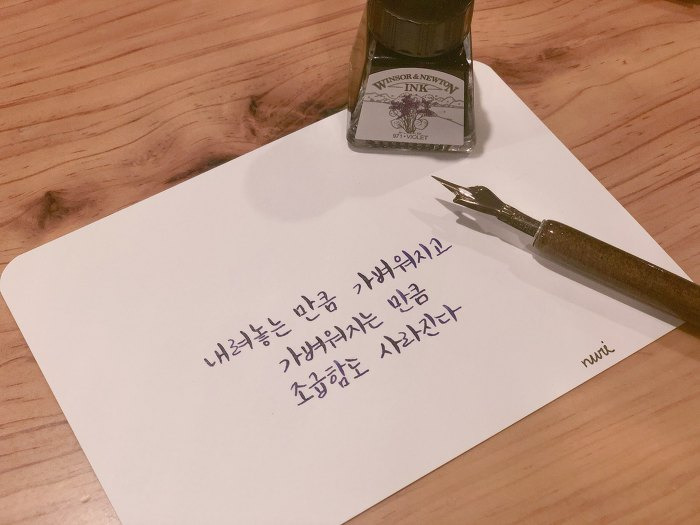 WINSOR & NEWTON
INK
971 • VIOLET
내려놓는 만큼 가벼워지고
가벼워지는 만큼
조급함도 사라진다
nuri